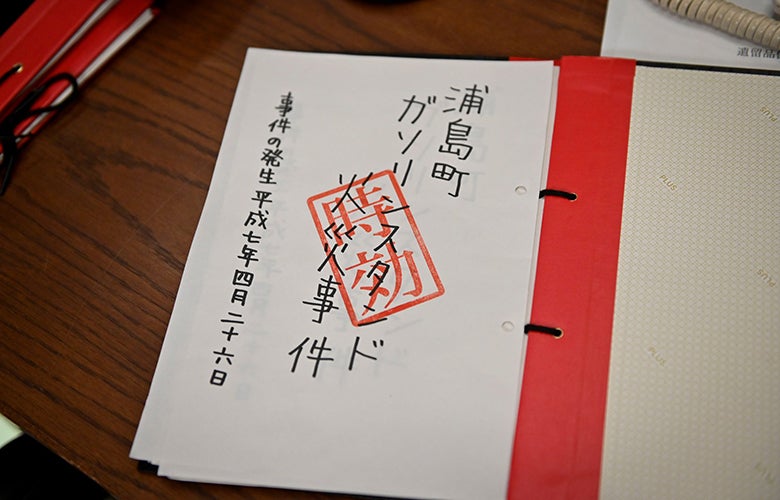 浦島町
ガソリンスタンド
火災事件
事件の発生平成七年四月二十六日
時効
遺留品
PLUS
PLUS
PLUS